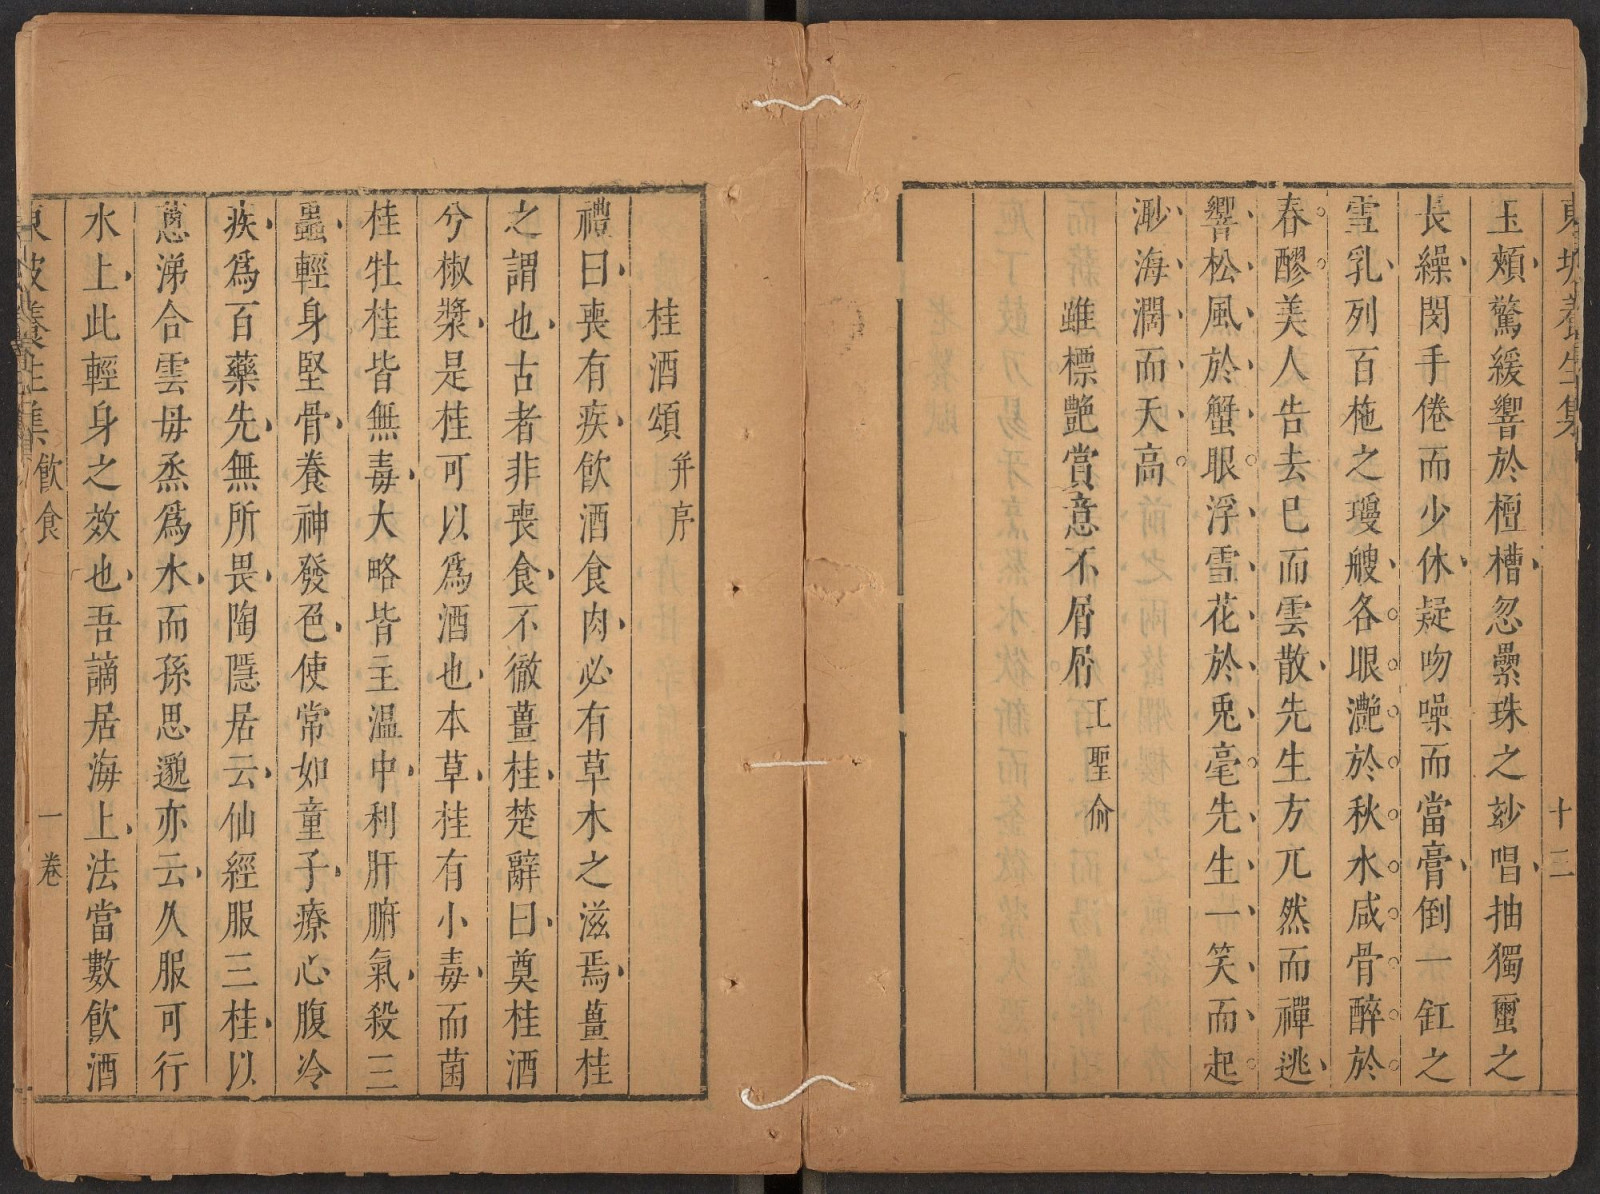 東坡養生集 十三
玉頰驚緩響於檀槽忽纍珠之玅唱抽獨璽之
長繰閔手倦而少休疑吻噪而當膏倒一缸之
雪乳列百柂之瓊艘各眼灔於秋水咸骨醉於
春醪美人告去已而雲散先生方兀然而禪逃
響松風於蟹眼浮雪花於兎毫先生一笑而起
渺海濶而天高
雖標艷賞意不屑屑 江聖俞
桂酒頌 并序
禮曰喪有疾飲酒食肉必有草木之滋焉薑桂
之謂也古者非喪食不徹薑桂楚辭曰奠桂酒
兮椒漿是桂可以爲酒也本草桂有小毒而菌
桂牡桂皆無毒大略皆主温中利肝腑氣殺三
蟲輕身堅骨養神發色使常如童子療心腹冷
疾爲百藥先無所畏陶隱居云仙經服三桂以
蔥涕合雲母烝爲水而孫思邈亦云久服可行
水上此輕身之效也吾謫居海上法當數飲酒
東坡養生集 飲食 一卷